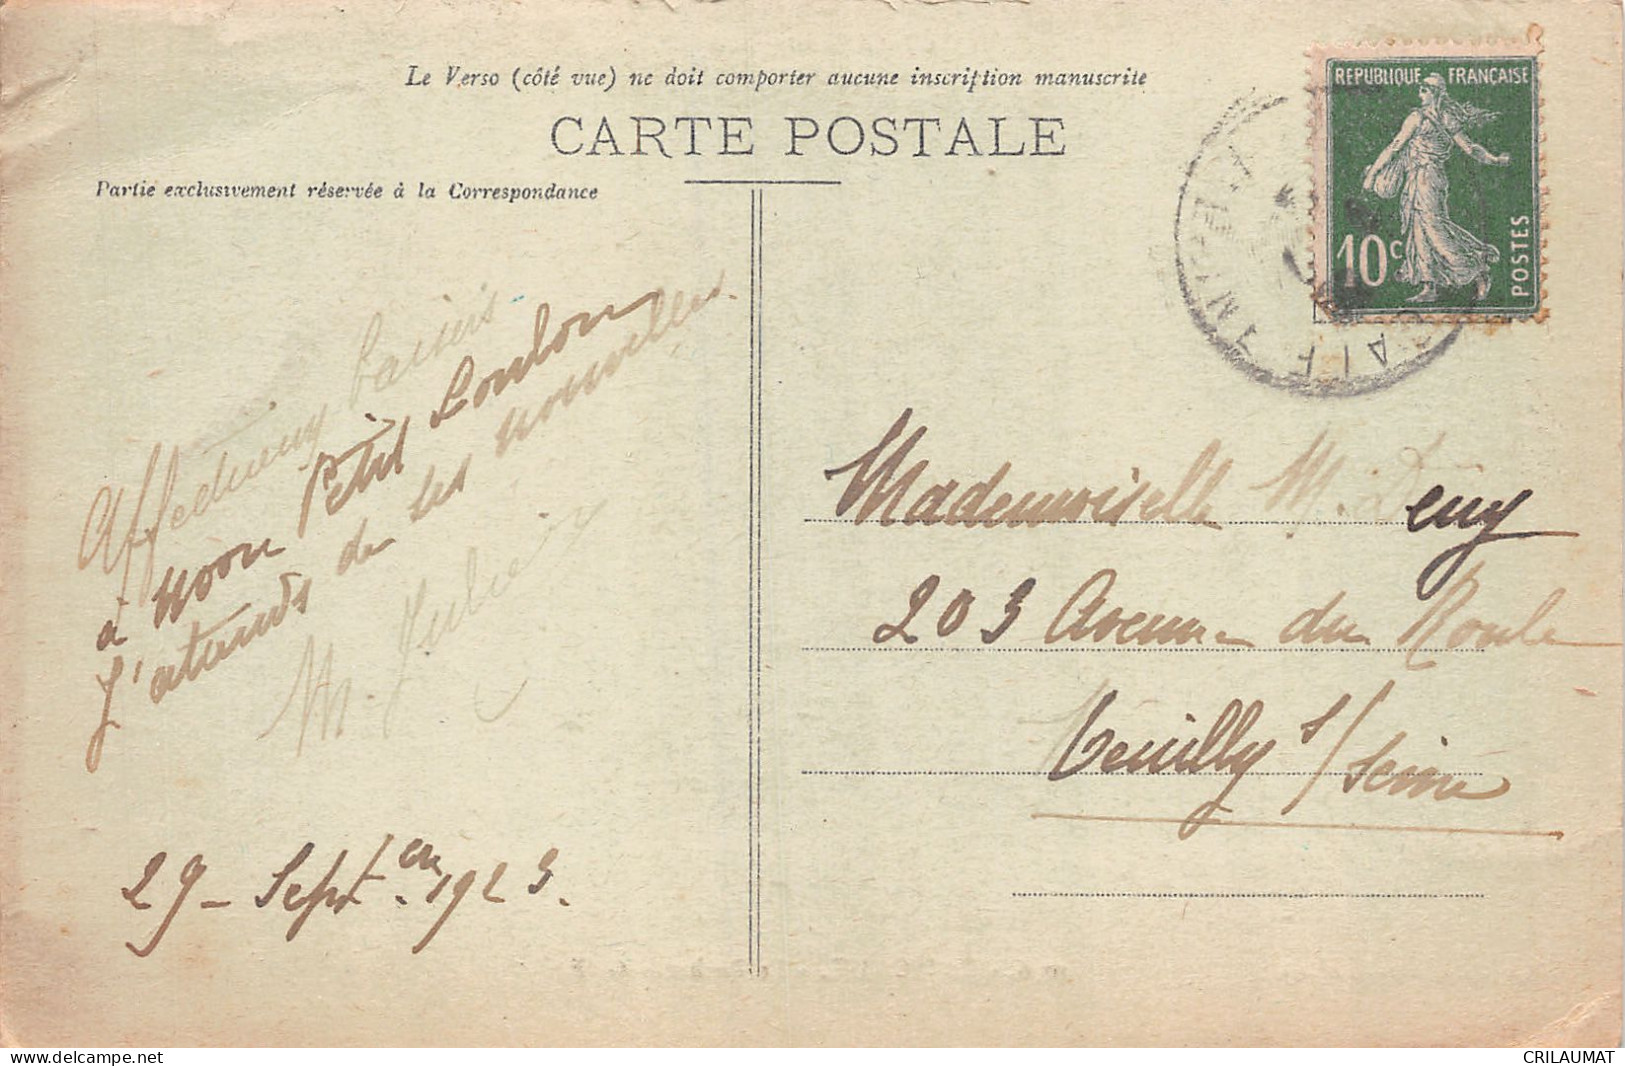 Le Verso (côté vue) ne doit comporter aucune inscription manuscrite
CARTE POSTALE
Partie exclusivement réservée à la Correspondance
REPUBLIQUE FRANÇAISE
10c
POSTES
Affectueux baisers
à mon Petit Loulou
J'attends de ses nouvelles.
M.
29 - Septem. 1923.
Mademoiselle M. Deny
203 Avenue du Roule
Neuilly s/Seine
delcampe.net
CRILAUMAT